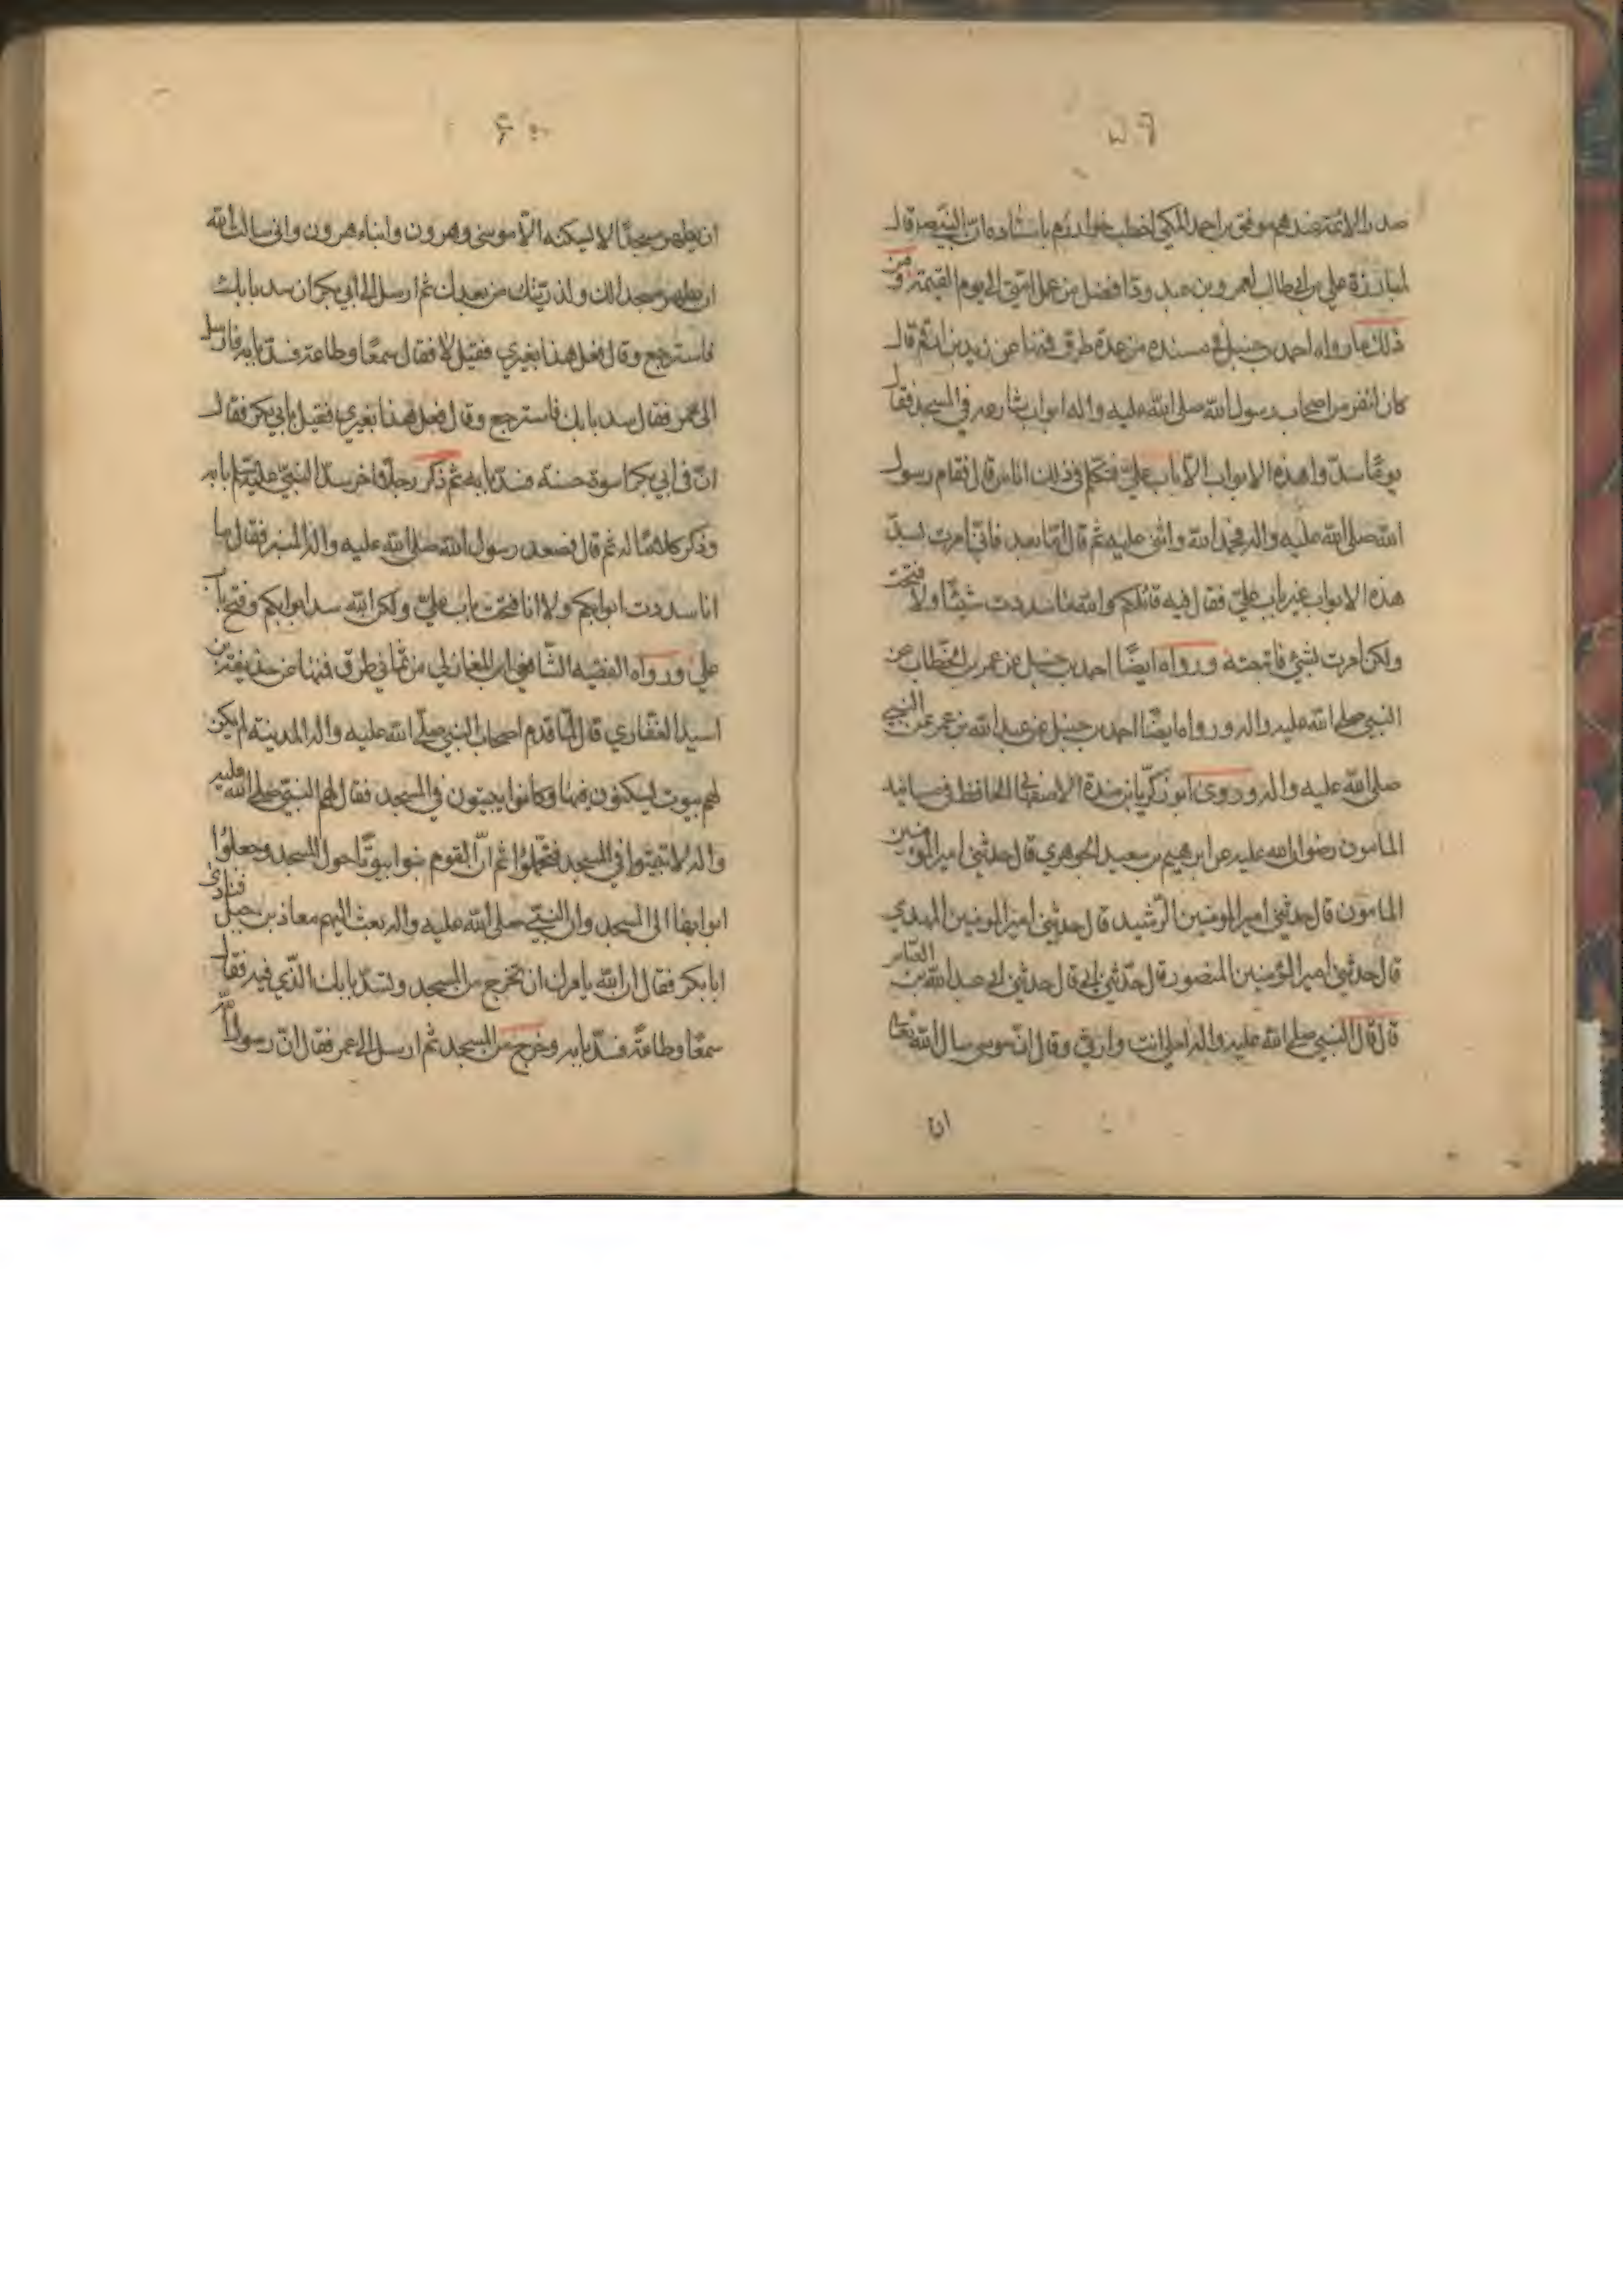 ٥٩
صدر الائمة عندهم موفق بن احمد المكي اخطب خوارزم باسناده ان النبي ص قال
لمبارزة علي بن ابي طالب لعمرو بن عبد ود افضل من عمل امتي الى يوم القيمة ومن
ذلك ما رواه احمد بن حنبل في مسنده من عدة طرق فمنها عن زيد بن ارقم قال
كان لنفر من اصحاب رسول الله صلى الله عليه واله ابواب شارعه في المسجد فقال
يومًا سدّوا هذه الابواب الّا باب عليّ فتكلم في ذلك اناس قال فقام رسول
الله صلى الله عليه واله فحمد الله واثنى عليه ثم قال امّا بعد فاني امرت بسدّ
هذه الابواب غير باب عليّ فقال فيه قائلكم والله ما سددت شيئًا ولا فتحت
ولكن امرت بشئ فاتبعته ورواه ايضًا احمد بن حنبل عن عمر بن الخطاب عن
النبي صلى الله عليه واله ورواه ايضًا احمد بن حنبل عن عبد الله بن عمر عن النبي
صلى الله عليه واله وروى ابو زكريا بن مندة الاصفهاني الحافظ في مسانيد
المامون رضوان الله عليه عن ابرهيم بن سعيد الجوهري قال حدثني امير المؤمنين
المامون قال حدثني امير المومنين الرّشيد قال حدثني امير المومنين المهدي
قال حدثني امير المؤمنين المنصور قال حدّثني ابي قال حدثني ابي عبد الله بن العباس
قال قال النبي صلى الله عليه واله لعلي انت وارثي وقال انّ موسى سال الله تعالى
ان
٦٠
ان يطهر مسجدًا لا يسكنه الّا موسى وهرون وابناء هرون واني سالت الله
ان يطهر مسجدا لك ولذريتك من بعدك ثم ارسل الى ابي بكر ان سد بابك
فاسترجع وقال فعل هذا بغيري فقيل لا فقال سمعًا وطاعة فسدّ بابه فارسل
الى عمر فقال سد بابك فاسترجع وقال فعل هذا بغيري فقيل بابي بكر فقال
انّ في ابي بكر اسوة حسنة فسدّ بابه ثم ذكر رجلًا اخر سدّ النبيّ عليه السلم بابه
وذكر كلامًا له ثم قال فصعد رسول الله صلى الله عليه واله المنبر فقال ما
انا سددت ابوابكم ولا انا فتحت باب عليّ ولكن الله سد ابوابكم وفتح باب
علي ورواه الفقيه الشّافعي ابن المغازلي من ثماني طرق فمنها عن حذيفة بن
اسيد الغفاري قال لمّا قدم اصحاب النبي صلّى الله عليه واله المدينة لم يكن
لهم بيوت يسكنون فيها وكانوا يبيتون في المسجد فقال لهم النبيّ صلى الله عليه
واله لا تبيتوا في المسجد فتحتلموا ثم انّ القوم بنوا بيوتًا حول المسجد وجعلوا
ابوابها الى المسجد وان النبيّ صلى الله عليه واله بعث اليهم معاذ بن جبل فنادى
ابا بكر فقال ان الله يامرك ان تخرج من المسجد وتسدّ بابك الّذي فيه فقال
سمعًا وطاعةً فسدّ بابه وخرج من المسجد ثم ارسل الى عمر فقال انّ رسول الله